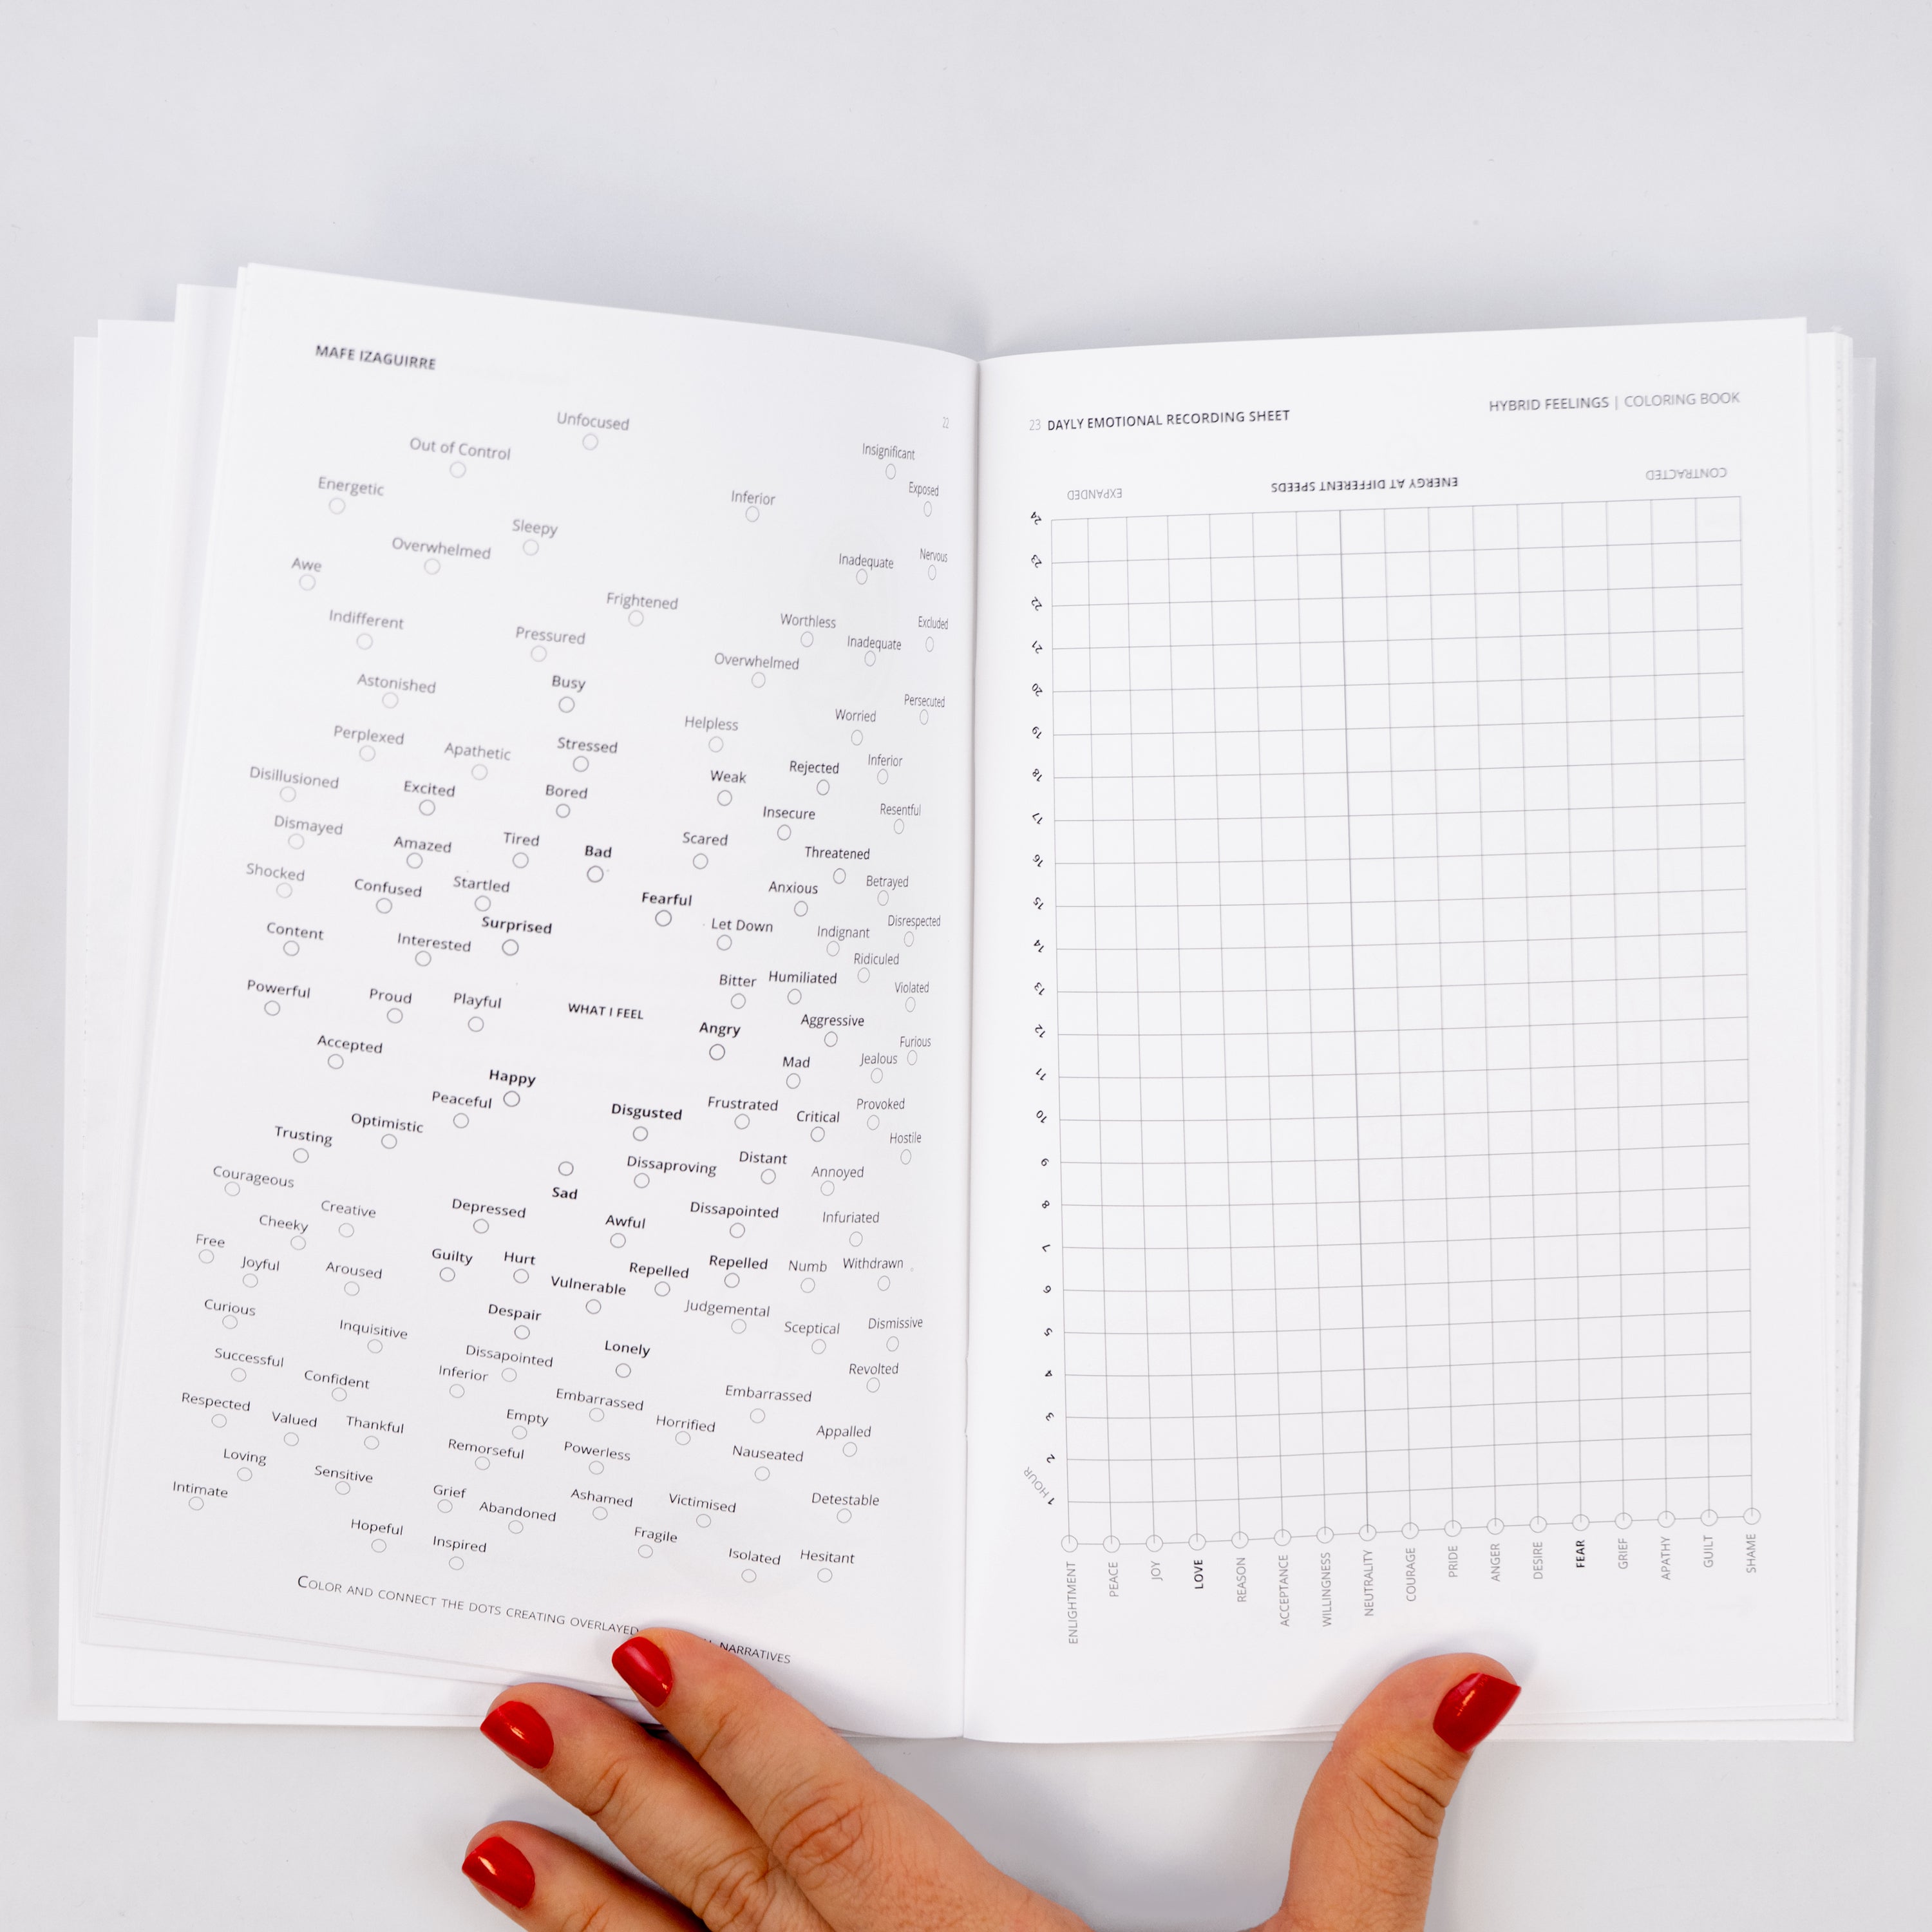 MAFE IZAGUIRRE
22
Unfocused
Out of Control
Insignificant
Energetic
Inferior
Exposed
Sleepy
Overwhelmed
Inadequate
Nervous
Awe
Frightened
Indifferent
Pressured
Worthless
Excluded
Inadequate
Overwhelmed
Astonished
Busy
Persecuted
Helpless
Worried
Perplexed
Apathetic
Stressed
Inferior
Disillusioned
Excited
Bored
Weak
Rejected
Insecure
Resentful
Dismayed
Amazed
Tired
Bad
Scared
Threatened
Shocked
Confused
Startled
Fearful
Anxious
Betrayed
Surprised
Let Down
Indignant
Disrespected
Content
Interested
Ridiculed
Bitter
Humiliated
Violated
Powerful
Proud
Playful
WHAT I FEEL
Angry
Aggressive
Accepted
Furious
Mad
Jealous
Happy
Peaceful
Disgusted
Frustrated
Critical
Provoked
Optimistic
Trusting
Hostile
Dissaproving
Distant
Annoyed
Courageous
Sad
Creative
Depressed
Awful
Dissapointed
Infuriated
Cheeky
Free
Joyful
Aroused
Guilty
Hurt
Vulnerable
Repelled
Repelled
Numb
Withdrawn
Curious
Inquisitive
Despair
Judgemental
Sceptical
Dismissive
Successful
Confident
Dissapointed
Inferior
Lonely
Revolted
Respected
Valued
Thankful
Empty
Embarrassed
Horrified
Embarrassed
Appalled
Loving
Sensitive
Remorseful
Powerless
Nauseated
Intimate
Grief
Abandoned
Ashamed
Victimised
Detestable
Hopeful
Inspired
Fragile
Isolated
Hesitant
COLOR AND CONNECT THE DOTS CREATING OVERLAYED
NARRATIVES
23 DAYLY EMOTIONAL RECORDING SHEET
HYBRID FEELINGS | COLORING BOOK
EXPANDED
ENERGY AT DIFFERENT SPEEDS
CONTRACTED
24
23
22
21
20
19
18
17
16
15
14
13
12
11
10
9
8
7
6
5
4
3
2
1 HOUR
ENLIGHTMENT
PEACE
JOY
LOVE
REASON
ACCEPTANCE
WILLINGNESS
NEUTRALITY
COURAGE
PRIDE
ANGER
DESIRE
FEAR
GRIEF
APATHY
GUILT
SHAME